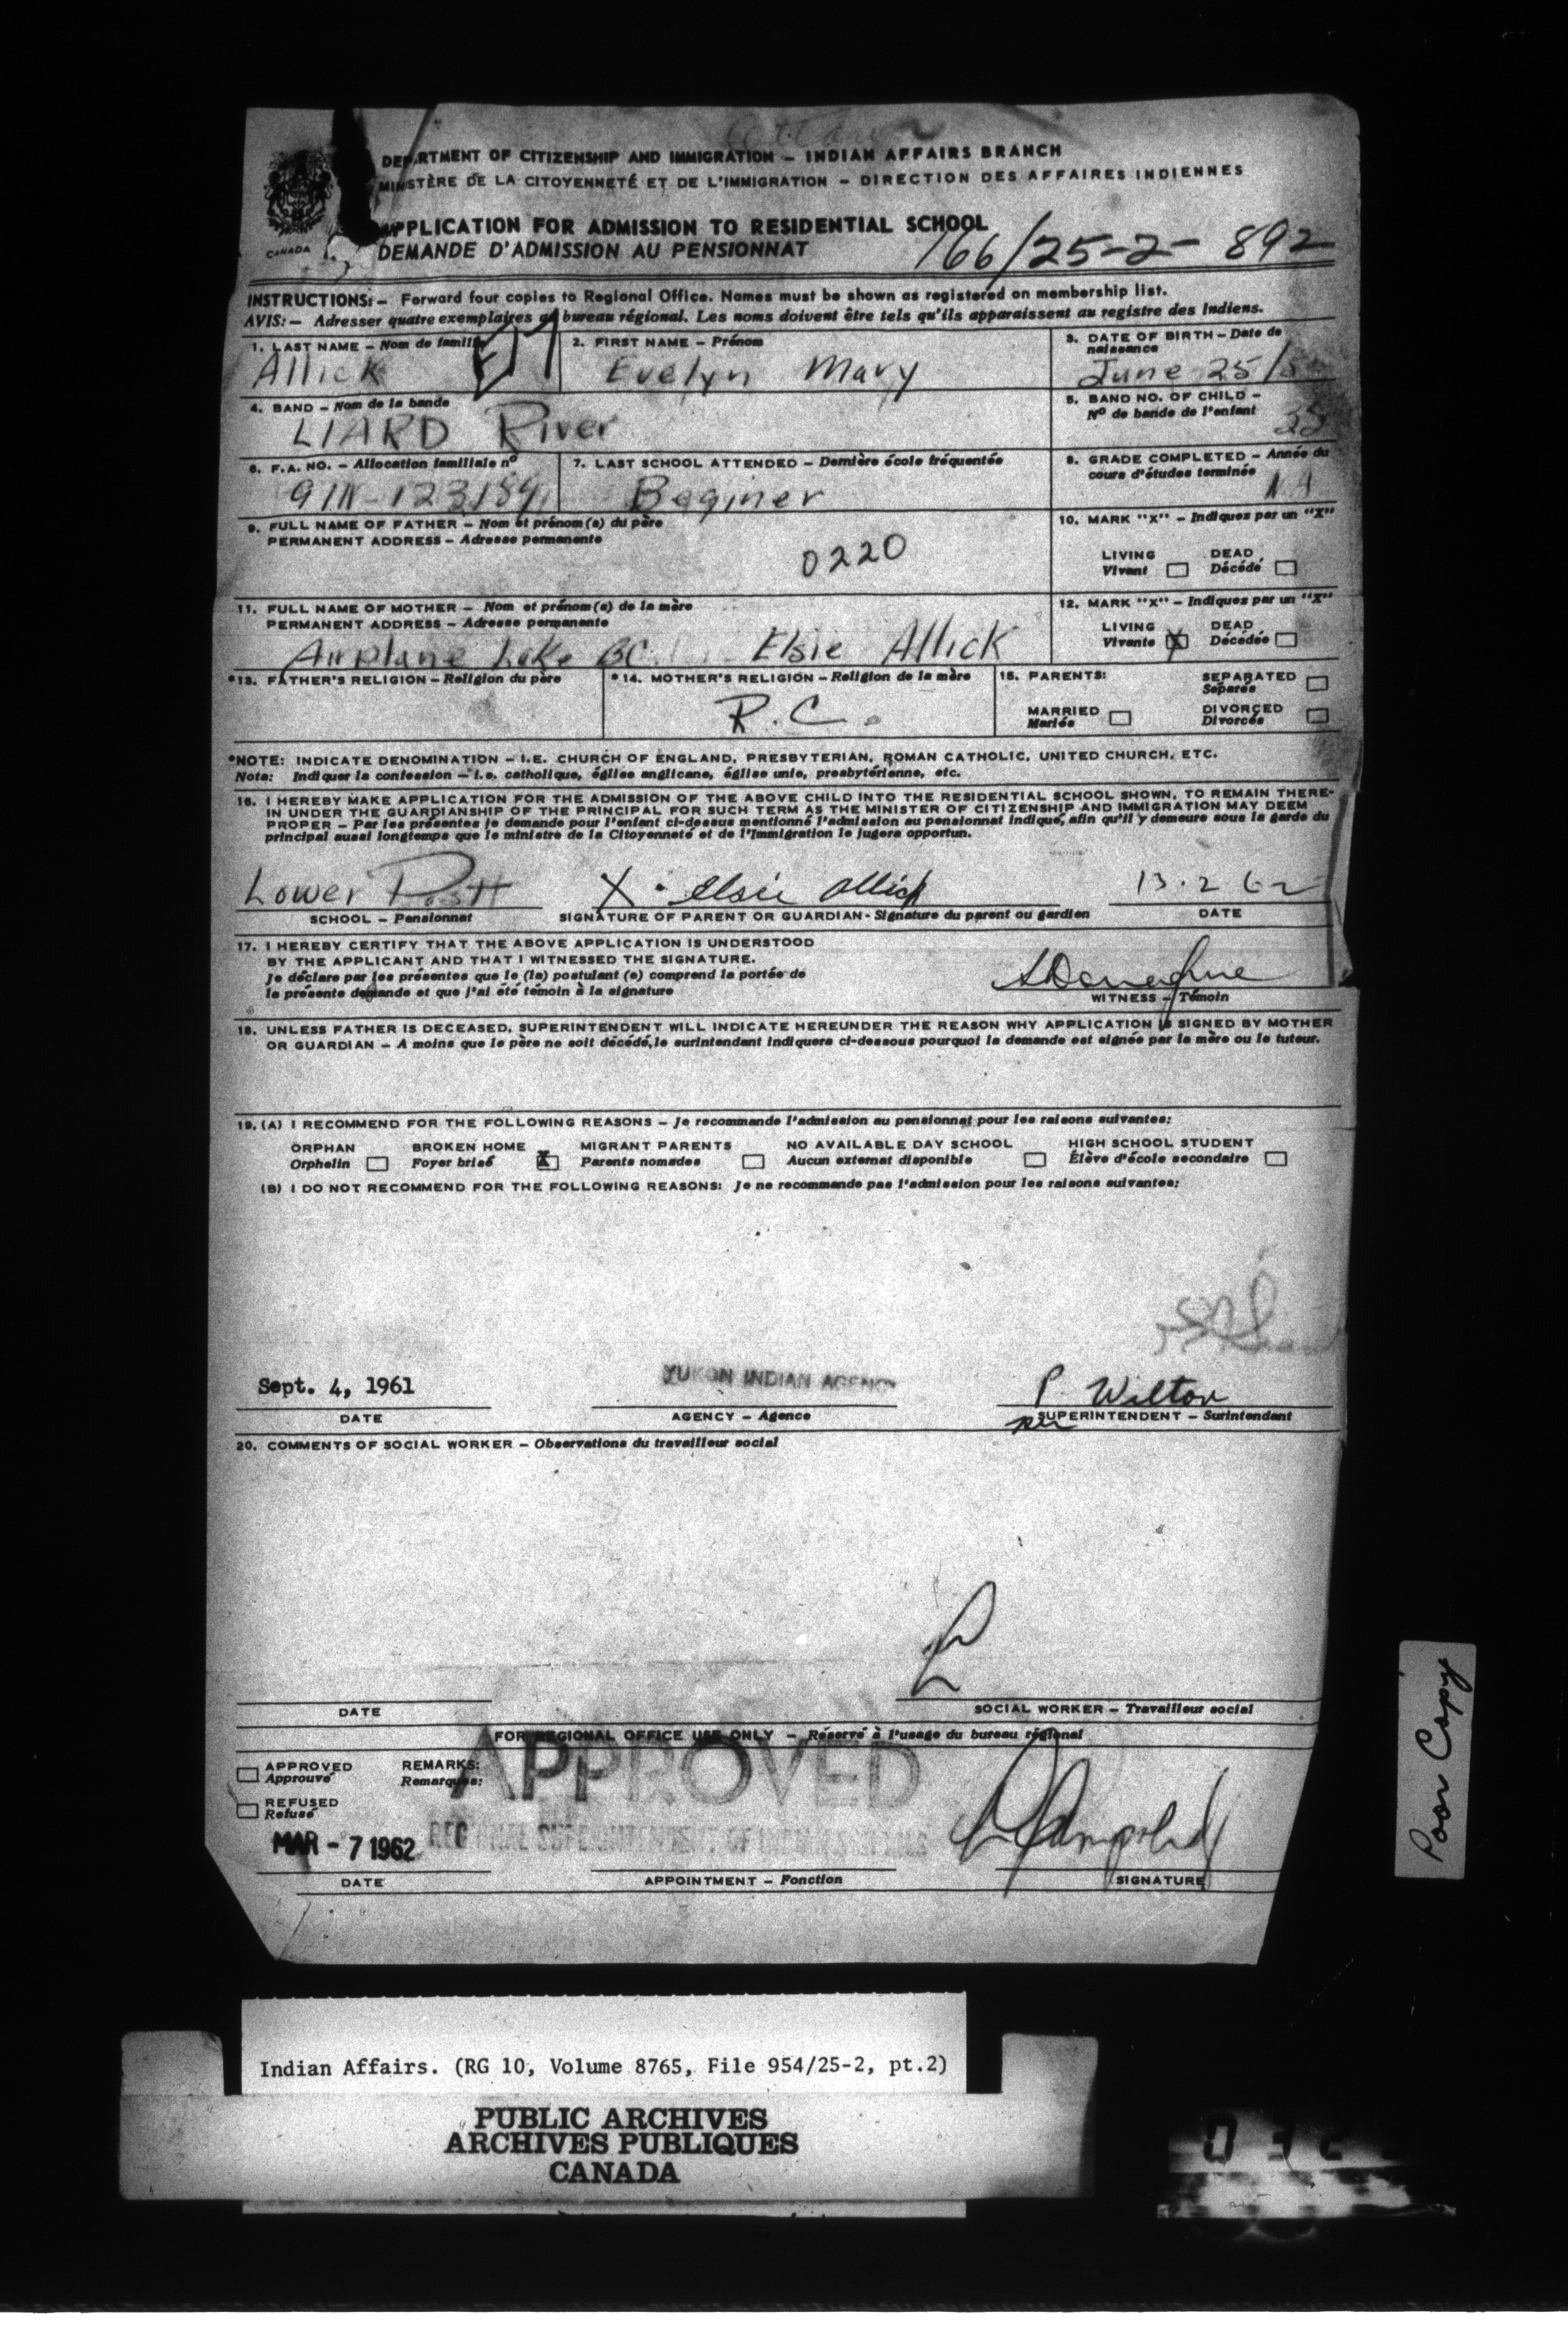 DEPARTMENT OF CITIZENSHIP AND IMMIGRATION – INDIAN AFFAIRS BRANCH
MINISTÈRE DE LA CITOYENNETÉ ET DE L'IMMIGRATION – DIRECTION DES AFFAIRES INDIENNES
CANADA
APPLICATION FOR ADMISSION TO RESIDENTIAL SCHOOL
DEMANDE D'ADMISSION AU PENSIONNAT
166/25-2- 892
INSTRUCTIONS:– Forward four copies to Regional Office. Names must be shown as registered on membership list.
AVIS:– Adresser quatre exemplaires au bureau régional. Les noms doivent être tels qu'ils apparaissent au registre des Indiens.
1. LAST NAME – Nom de famille
Allick
2. FIRST NAME – Prénom
Evelyn Mary
3. DATE OF BIRTH – Date de naissance
June 25/
4. BAND – Nom de la bande
LIARD River
5. BAND NO. OF CHILD –
Nº de bande de l'enfant
6. F.A. NO. – Allocation familiale nº
7. LAST SCHOOL ATTENDED – Dernière école fréquentée
Beginer
8. GRADE COMPLETED – Année du
cours d'études terminée
9. FULL NAME OF FATHER – Nom et prénom(s) du père
PERMANENT ADDRESS – Adresse permanente
0220
10. MARK "X" – Indiquez par un "X"
LIVING DEAD
Vivant Décédé
11. FULL NAME OF MOTHER – Nom et prénom(s) de la mère
PERMANENT ADDRESS – Adresse permanente
Airplane Lake BC. Elsie Allick
12. MARK "X" – Indiquez par un "X"
LIVING DEAD
Vivante X Décédée
*13. FATHER'S RELIGION – Religion du père
*14. MOTHER'S RELIGION – Religion de la mère
R.C.
15. PARENTS:
SEPARATED
Séparés
MARRIED
Mariés
DIVORCED
Divorcés
*NOTE: INDICATE DENOMINATION – I.E. CHURCH OF ENGLAND, PRESBYTERIAN, ROMAN CATHOLIC, UNITED CHURCH, ETC.
Note: Indiquer la confession – i.e. catholique, église anglicane, église unie, presbytérienne, etc.
16. I HEREBY MAKE APPLICATION FOR THE ADMISSION OF THE ABOVE CHILD INTO THE RESIDENTIAL SCHOOL SHOWN, TO REMAIN THERE-
IN UNDER THE GUARDIANSHIP OF THE PRINCIPAL FOR SUCH TERM AS THE MINISTER OF CITIZENSHIP AND IMMIGRATION MAY DEEM
PROPER – Par les présentes je demande pour l'enfant ci-dessus mentionné l'admission au pensionnat indiqué, afin qu'il y demeure sous la garde du
principal aussi longtemps que le ministre de la Citoyenneté et de l'Immigration le jugera opportun.
Lower Post X Elsie Allick 13.2 62
SCHOOL – Pensionnat
SIGNATURE OF PARENT OR GUARDIAN - Signature du parent ou gardien
DATE
17. I HEREBY CERTIFY THAT THE ABOVE APPLICATION IS UNDERSTOOD
BY THE APPLICANT AND THAT I WITNESSED THE SIGNATURE.
Je déclare par les présentes que le (la) postulant (e) comprend la portée de
la présente demande et que j'ai été témoin à la signature
WITNESS – Témoin
18. UNLESS FATHER IS DECEASED, SUPERINTENDENT WILL INDICATE HEREUNDER THE REASON WHY APPLICATION IS SIGNED BY MOTHER
OR GUARDIAN – A moins que le père ne soit décédé, le surintendant indiquera ci-dessous pourquoi la demande est signée par la mère ou le tuteur.
19. (A) I RECOMMEND FOR THE FOLLOWING REASONS – Je recommande l'admission au pensionnat pour les raisons suivantes:
ORPHAN BROKEN HOME MIGRANT PARENTS NO AVAILABLE DAY SCHOOL HIGH SCHOOL STUDENT
Orphelin Foyer brisé X Parents nomades Aucun externat disponible Élève d'école secondaire
(B) I DO NOT RECOMMEND FOR THE FOLLOWING REASONS: Je ne recommande pas l'admission pour les raisons suivantes:
Sept. 4, 1961 YUKON INDIAN AGENCY P Wilton
DATE AGENCY – Agence SUPERINTENDENT – Surintendant
20. COMMENTS OF SOCIAL WORKER – Observations du travailleur social
DATE SOCIAL WORKER – Travailleur social
FOR REGIONAL OFFICE USE ONLY – Réservé à l'usage du bureau régional
APPROVED
Approuvé
REMARKS:
Remarques:
APPROVED
REFUSED
Refusé
MAR - 7 1962
REGIONAL SUPERINTENDENT OF INDIAN AGENCIES
DATE APPOINTMENT – Fonction SIGNATURE
Poor Copy
Indian Affairs. (RG 10, Volume 8765, File 954/25-2, pt.2)
PUBLIC ARCHIVES
ARCHIVES PUBLIQUES
CANADA